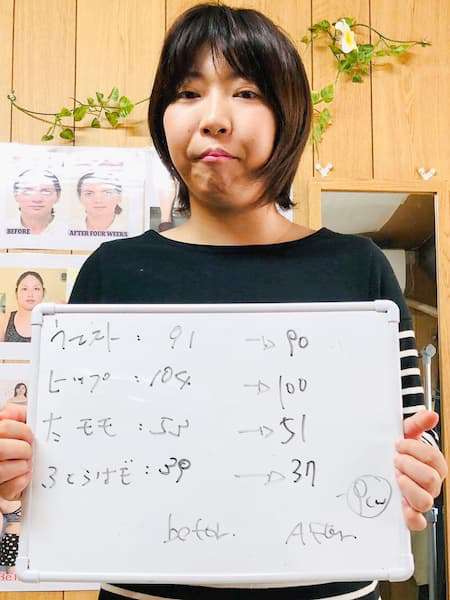 BEFORE
AFTER FOUR WEEKS
ウエスト: 91 → 90
ヒップ: 104 → 100
太モモ: 53 → 51
ふくらはぎ: 39 → 37
befor. After.